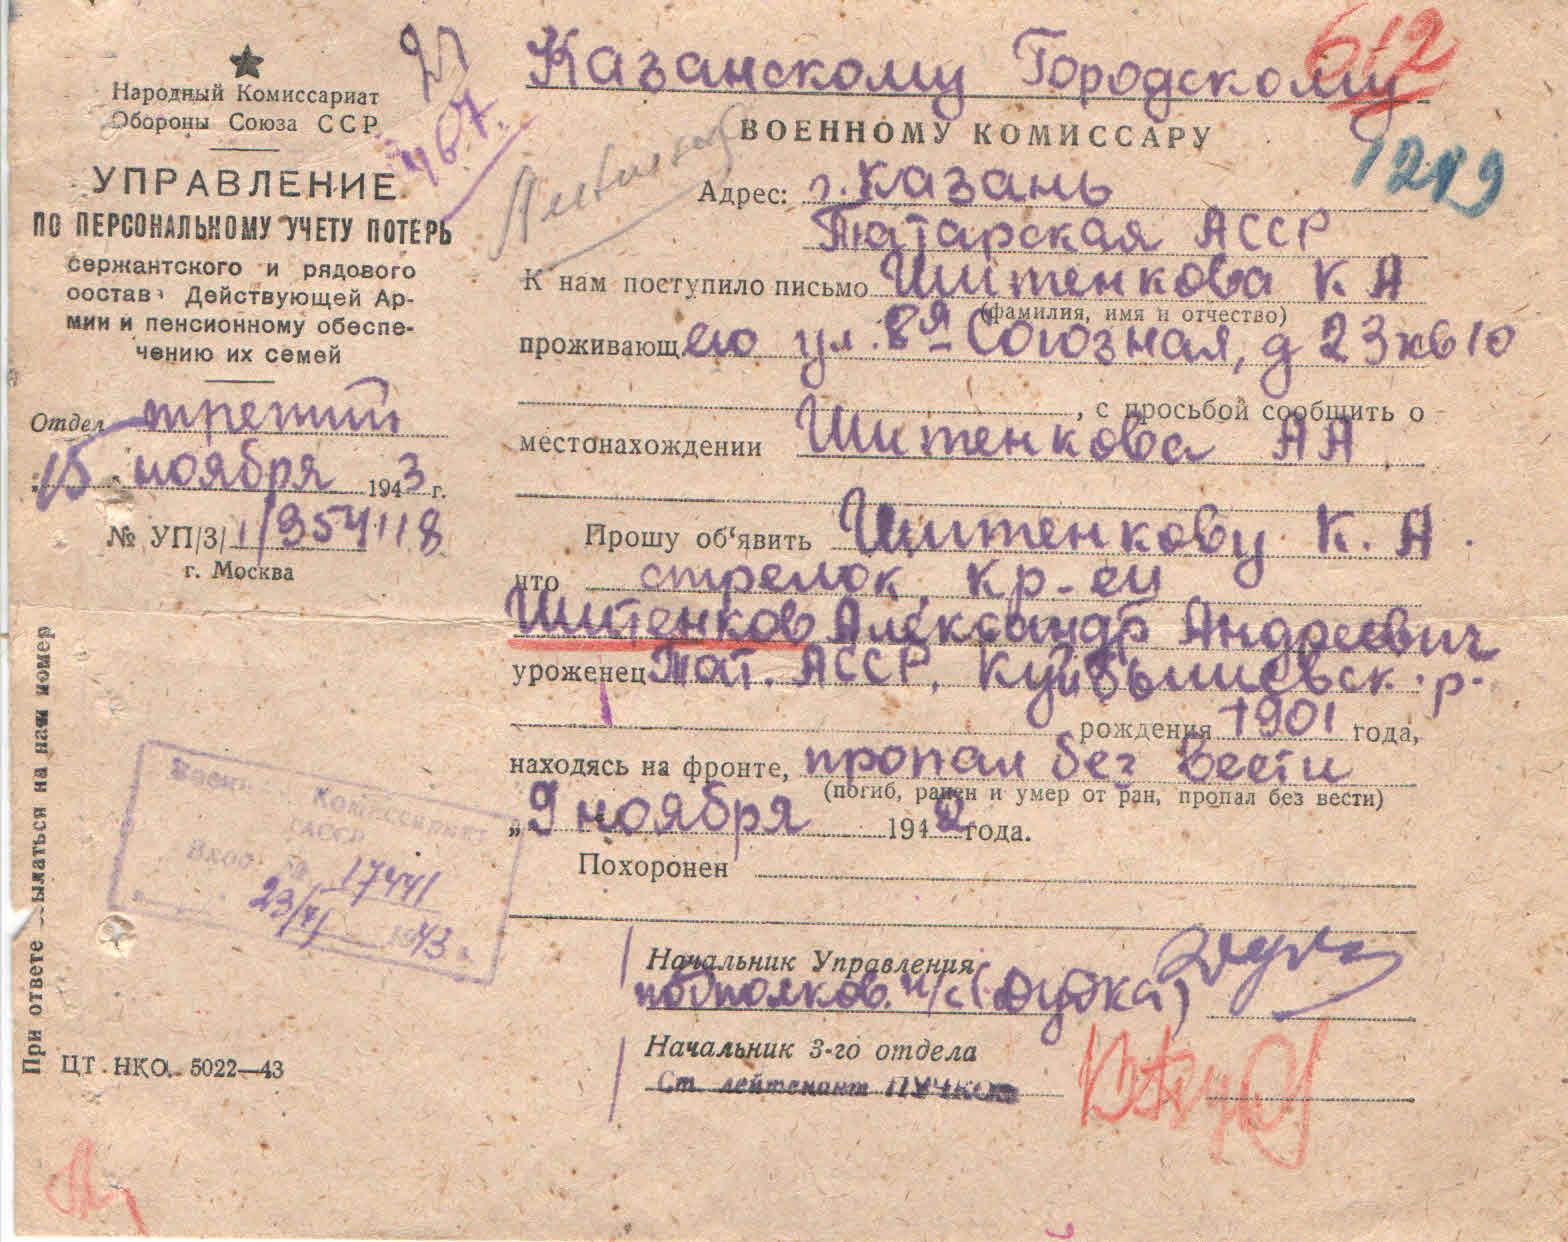 Народный Комиссариат
Обороны Союза ССР
УПРАВЛЕНИЕ
ПО ПЕРСОНАЛЬНОМУ УЧЕТУ ПОТЕРЬ
сержантского и рядового
состава Действующей Ар-
мии и пенсионному обеспе-
чению их семей
Отдел третий
15 ноября 1943 г.
№ УП/3/1/954118
г. Москва
При ответе ссылаться на наш номер
Комиссариат
ТАССР
Вход. № 17441
23/XI 1943
ЦТ. НКО. 5022—43
612
Казанскому Городскому
ВОЕННОМУ КОМИССАРУ
1219
Адрес: г. Казань
Татарская АССР
К нам поступило письмо Шитенкова К А
(фамилия, имя и отчество)
проживающего ул. 8я Союзная, д 23 кв 10
, с просьбой сообщить о
местонахождении Шитенкова А А
Прошу об‘явить Шитенкову К. А.
что стрелок, кр-ец
Шитенков Александр Андреевич
уроженец Тат. АССР, Куйбышевск. р-
рождения 1901 года,
находясь на фронте, пропал без вести
(погиб, ранен и умер от ран, пропал без вести)
„9 ноября 1942 года.
Похоронен
Начальник Управления
подполков. и/с (Дудка)
Начальник 3-го отдела
Ст. лейтенант ПУЧКОВ